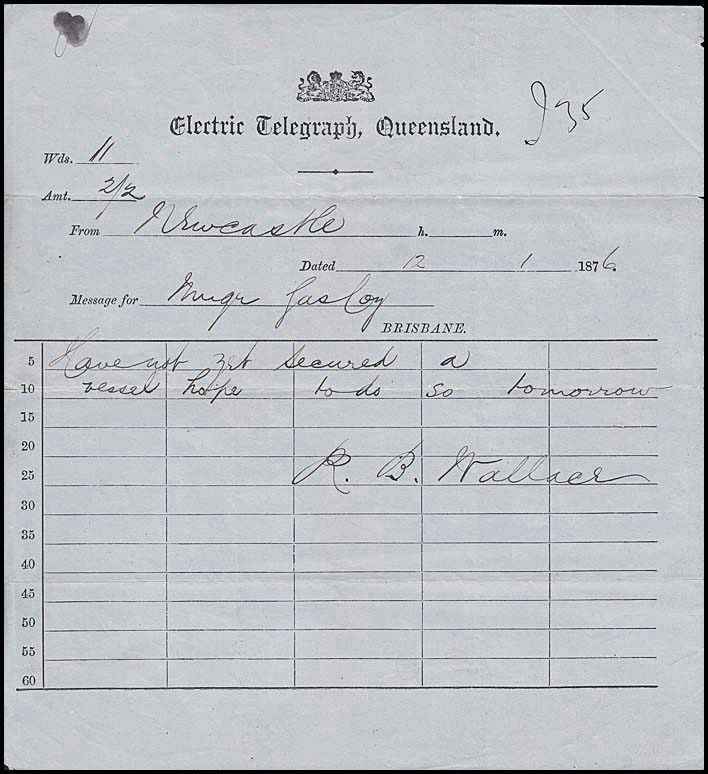 Electric Telegraph, Queensland.
Wds. 11
Amt. 2/2
From Newcastle h. m.
Dated 12 1 1876.
Message for Mngr Gas Coy
BRISBANE.
5 Have not yet secured a
10 vessel hope to do so tomorrow
15
20
25 R. B. Wallace
30
35
35
40
45
50
55
60